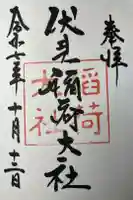 奉拝
伏見稲荷大社
稲荷
大社
令和七年十月十三日